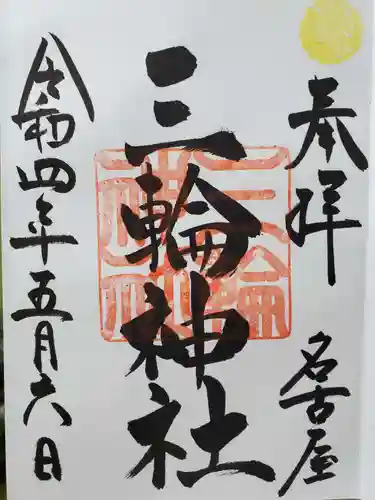 奉拝
名古屋
三輪神社
三輪神社
令和四年五月六日